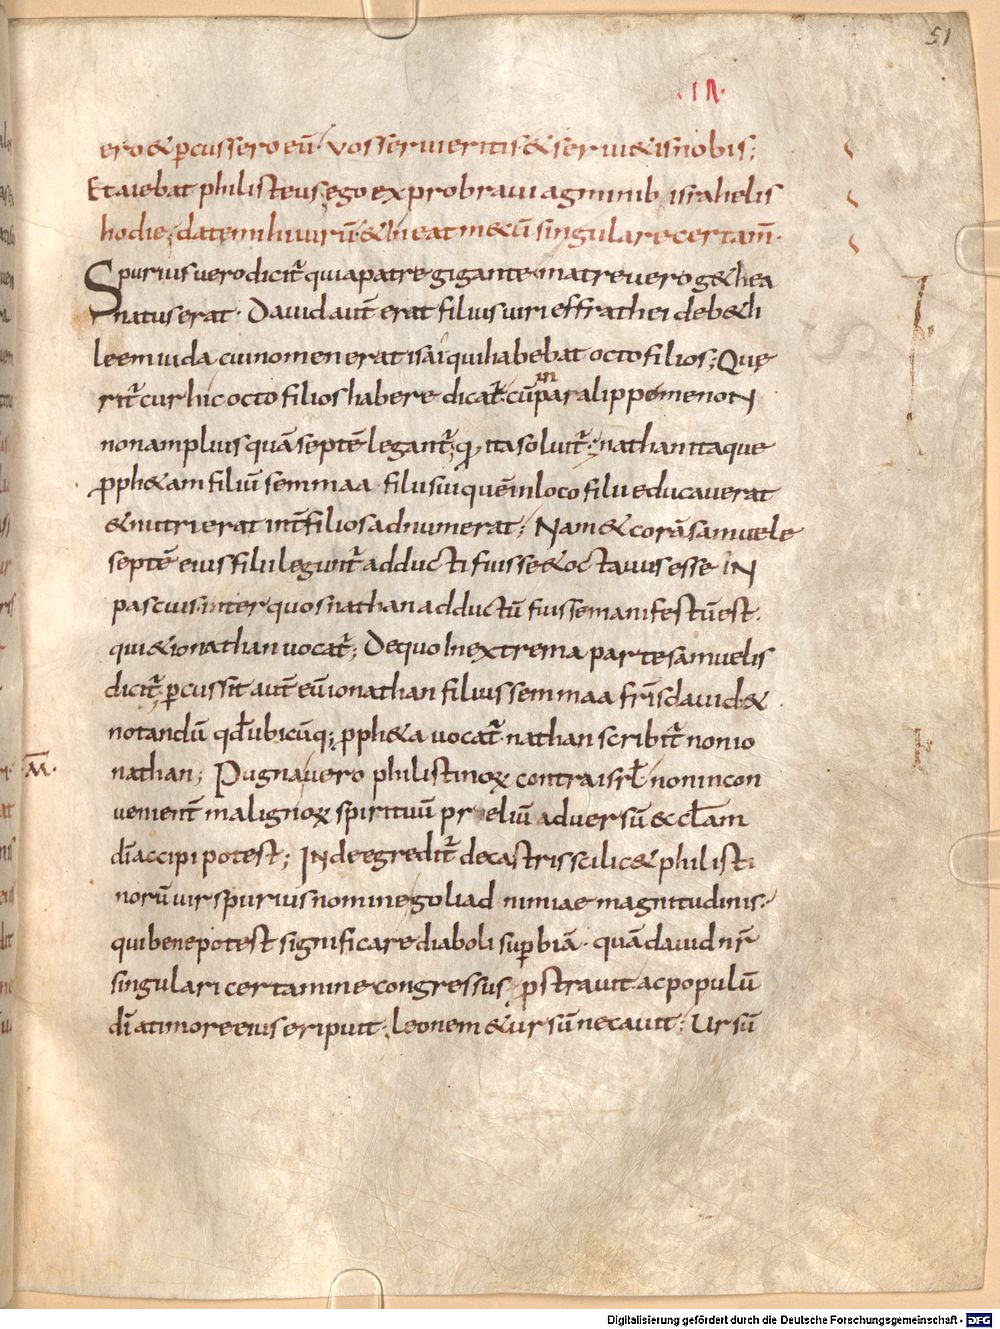 51
·IN·
ero & ꝑcussero eū· vos servieritis· & servi&is nobis;
Et aiebat philisteus, ego exprobravi agminib, israhelis
hodie; date mihi virū & ineat mecū singulare certam̄·
Spurius vero dicit̄ quia patre gigante· matre vero g&hea
natus erat· David aut̄ erat filius viri effrathei de b&h
leem iuda cui nomen erat isai qui habebat octo filios; Quę
rit̄ cur hic octo filios habere dicat̄· cū in paralippomenoN
non ampluis quā septē legant̄; q, ita soluit̄; nathan itaque
ꝓph&am filiū semmaa· filii sui quē in loco filii educaverat
& nutrierat int̄ filios adnumerat; Nam & corā samuele
septē eius filii legunt̄ adducti fuisse & octavus esse IN
pascuis· inter quos nathan adductū fuisse manifestū est·
qui & ionathan vocat̄; De quo In extrema parte samuelis
dicit̄; ꝑcussit aut̄ eū ionathan filius semmaa fr̄is david· &
notandū qđ ubicūq; ꝓph&a vocat̄ nathan scribit̄ non io
nathan; Pugna vero philistinoꝝ contra isrl̄ non incon
venient̄ malignoꝝ spirituū prelium adversū ęccl̄am
dī accipi potest; INde egredit̄ de castris scilic& philisti
M̄·
norū vir spurius nomine goliad nimiae magnitudinis·
qui bene potest significare diaboli suꝑbiā· quā david nr̄
singulari certamine congressus ꝓstravit ac populū
dī a timore eius eripuit; leonem & ursū necavit; Ursū
Digitalisierung gefördert durch die Deutsche Forschungsgemeinschaft - DFG